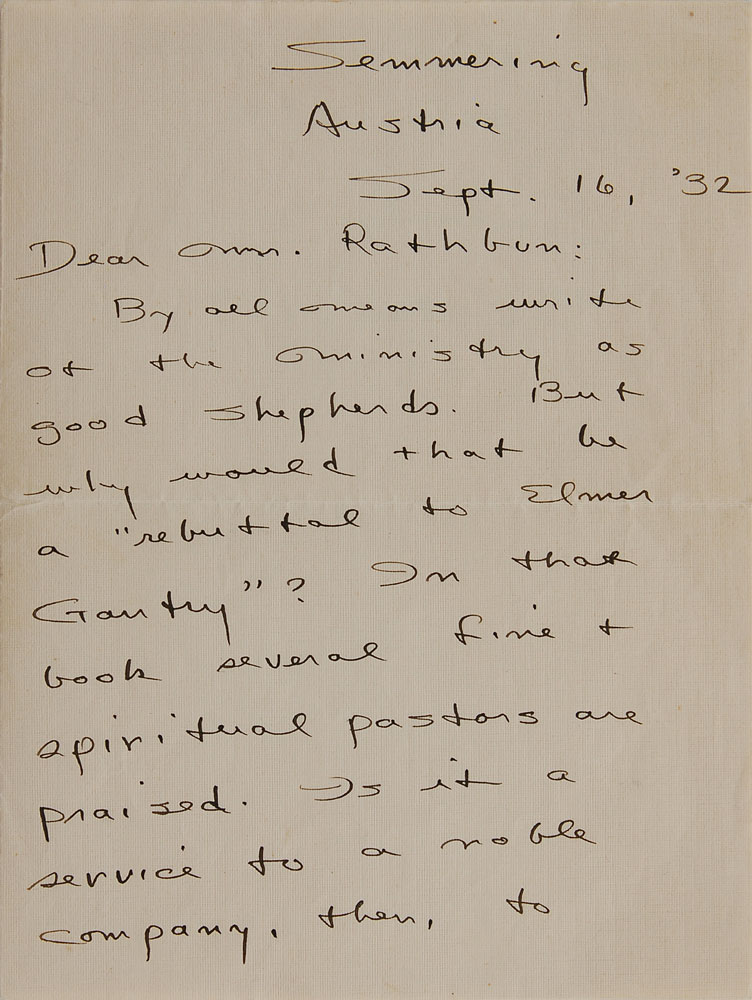 Semmering
Austria
Sept. 16, '32
Dear Mr. Rathbun:
By all means write
of the ministry as
good shepherds. But
why would that be
a "rebuttal to Elmer
Gantry"? In that
book several fine +
spiritual pastors are
praised. Is it a
service to a noble
company, then, to